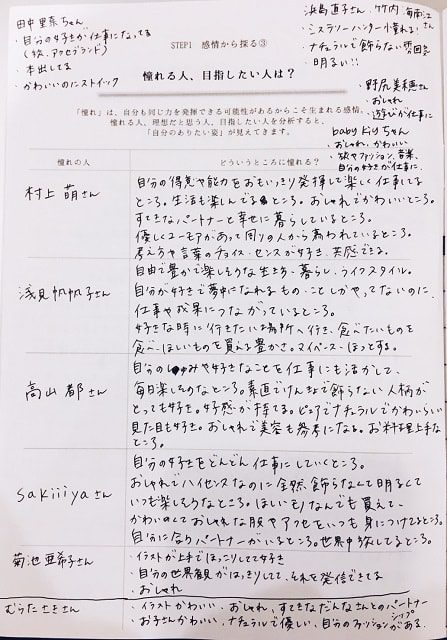 田中里奈ちゃん
・自分の好きが仕事になってる
(旅、アクセブランド)
・本出してる
・かわいいのにストイック
浜島直子さん、竹内海南江さん
・ミステリーハンター憧れる!
・ナチュラルで飾らない雰囲気
・明るい!!
・野尻美穂さん
・おしゃれ
・遊びが仕事に
babykiyちゃん
・おしゃれ、かわいい
・旅やファッション、音楽、
自分の好きが仕事に
STEP1 感情から探る③
憧れる人、目指したい人は?
「憧れ」は、自分も同じ力を発揮できる可能性があるからこそ生まれる感情。
憧れる人、理想だと思う人、目指したい人を分析すると、
「自分のありたい姿」が見えてきます。
憧れの人
どういうところに憧れる?
村上 萌さん
自分の得意や能力をおもいっきり発揮して楽しく仕事してる
ところ。生活も楽しんでるところ。おしゃれでかわいいところ。
すてきなパートナーと幸せに暮らしているところ。
優しくユーモアがあって周りの人から慕われているところ。
考え方や言葉のチョイス・センスが好き。共感できる。
浅見帆帆子さん
自由で豊かで楽しそうな生き方・暮らし・ライフスタイル。
自分が好きで夢中になれるもの・ことしかやってないのに、
仕事や成果につながっているところ。
好きな時に行きたい場所へ行き、食べたいものを
食べ、ほしいものを買える豊かさ。マイペース・ほっとする。
高山 都さん
自分の みや好きなことを仕事にも活かして、
毎日楽しそうなところ。素直でけんきょで飾らない人柄が
とっても好き。好感が持てる。ピュアでナチュラルでかわいらしい
見た目も好き。おしゃれで美容も参考になる。お料理上手な
ところ。
sakiiiyaさん
自分の好きをどんどん仕事にしていくところ。
おしゃれでハイセンスなのに全然飾らなくて明るくて
いつも楽しそうなところ。ほしいモノなんでも買えて、
かわいくておしゃれな服やアクセをいつも身につけてるところ。
自分に合うパートナーがいるところ。世界中旅してるところ。
菊池亜希子さん
・イラストが上手でほっこりしてて好き
・自分の世界観がはっきりしてて、それを発信できてる
・おしゃれ
むらたさきさん
・イラストかわいい、おしゃれ、すてきなだんなさんとのパートナーシップ
・お子さんかわいい、ナチュラルで優しい、自分のファッションがある。